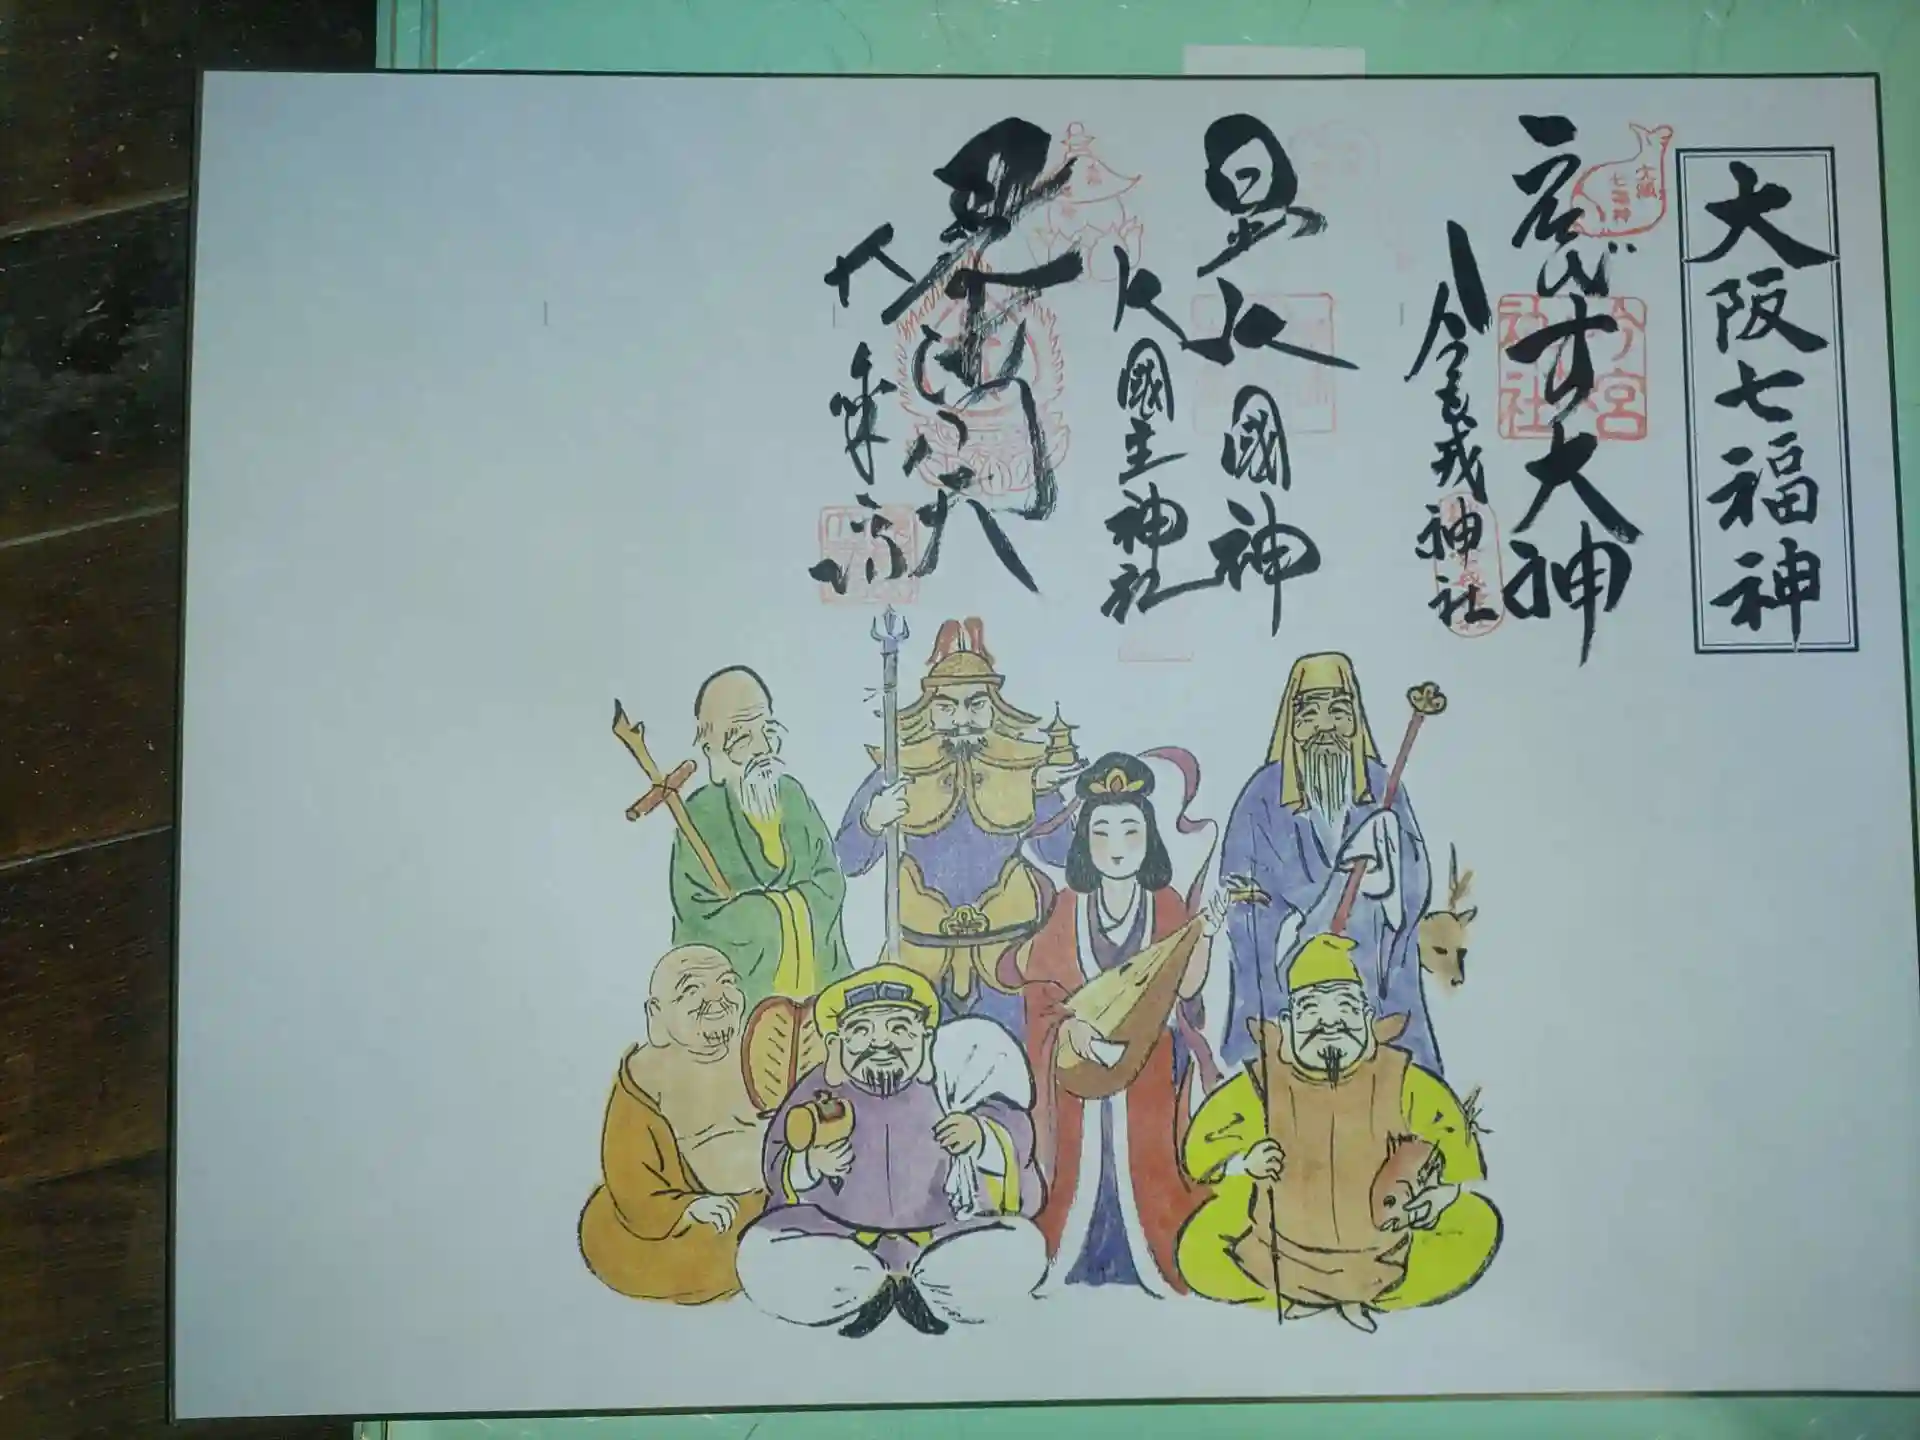 大阪七福神
大阪
七福神
ゑびす大神
今宮
神社
今宮戎神社
大國神
大國主神社
毘沙門天
大乗坊